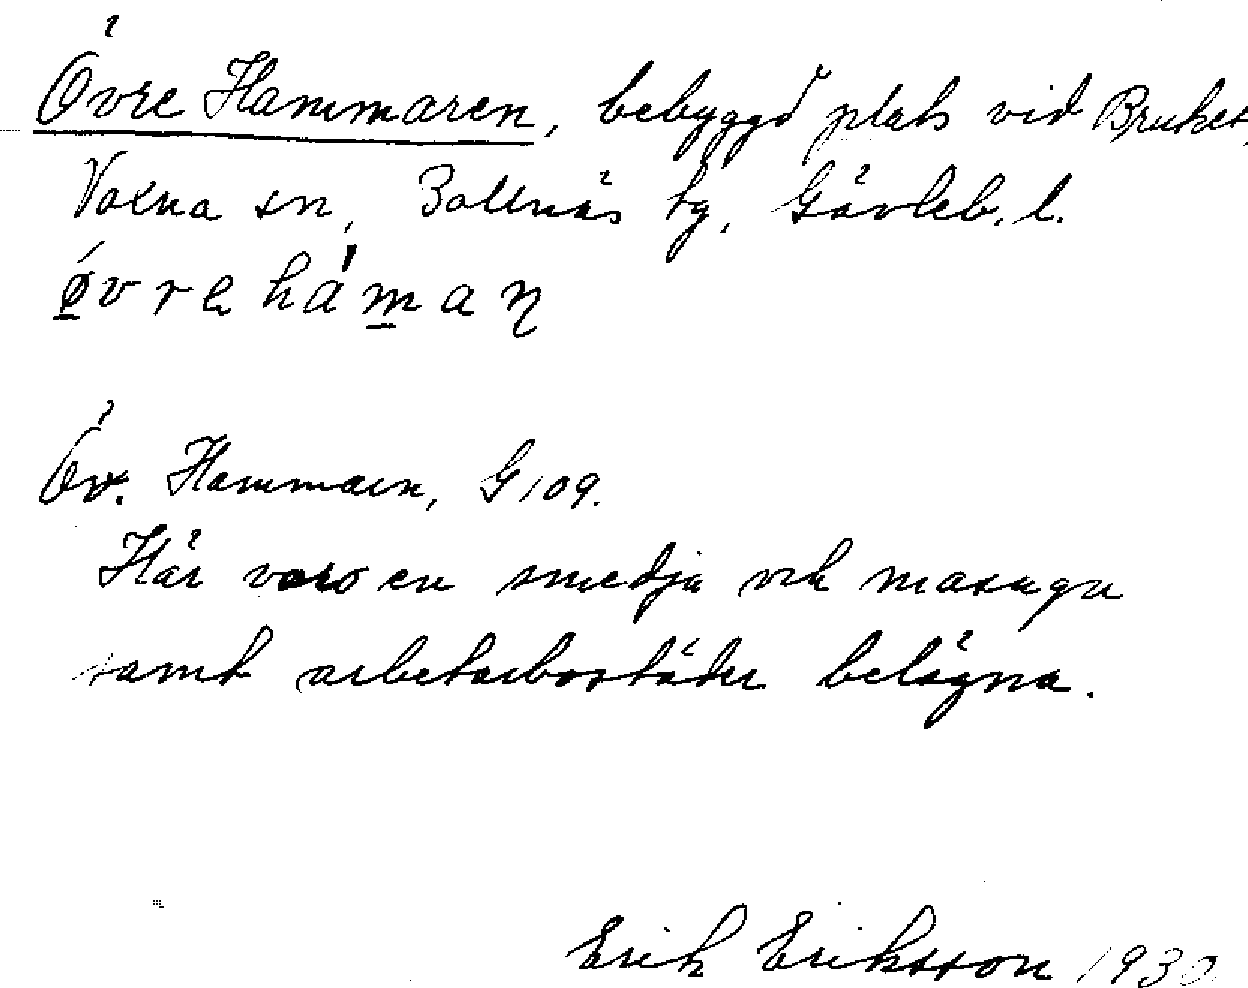 Övre Hammaren, bebyggd plats vid Bruket,
Voxna sn, Bollnäs tg, Gävleb. l.
ǿ̱vre há̍m̱aṇ
Öv. Hammaren, G 109.
Här voro en smedja och masugn
samt arbetarbostäder belägna.
Erik Eriksson 1930